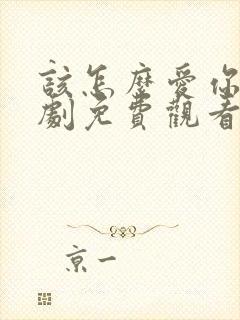 該怎麼愛你
劇免費觀看
京一